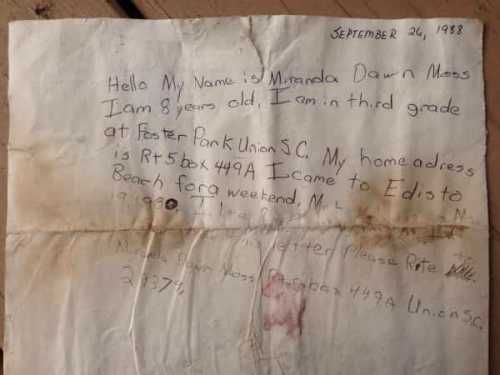 SEPTEMBER 26, 1988
Hello My Name is Miranda Dawn Moss
I am 8 years old, I am in third grade
at Foster Park Union S.C. My home adress
is Rt 5 box 449A I came to Edisto
Beach for a weekend,
I
letter Please Rite
Dawn Moss box 449A Union S.C.
29379,